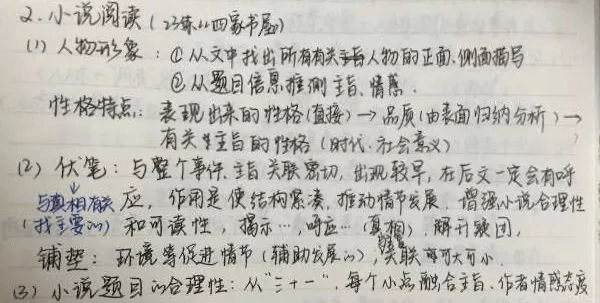 2. 小说阅读（23练11四家书屋）
(1) 人物形象：①从文中找出所有有关人物的正面、侧面描写
②从题目信息推测主旨、情感.
性格特点：表现出来的性格(直接)→品质(由表面归纳分析)→
有关主旨的性格（时代、社会意义）
(2) 伏笔：与整个事件、主旨关联密切，出现较早，在后文一定会有呼
与真相有关 应，作用是使结构紧凑，推动情节发展，增强小说合理性
(找主要的) 和可读性，揭示…，呼应…（真相）解开疑团，
铺垫：环境等促进情节（辅助发展的），关联可大可小.
(3) 小说题目的合理性：从“三十一”，每个小点融合主旨、作者情感态度